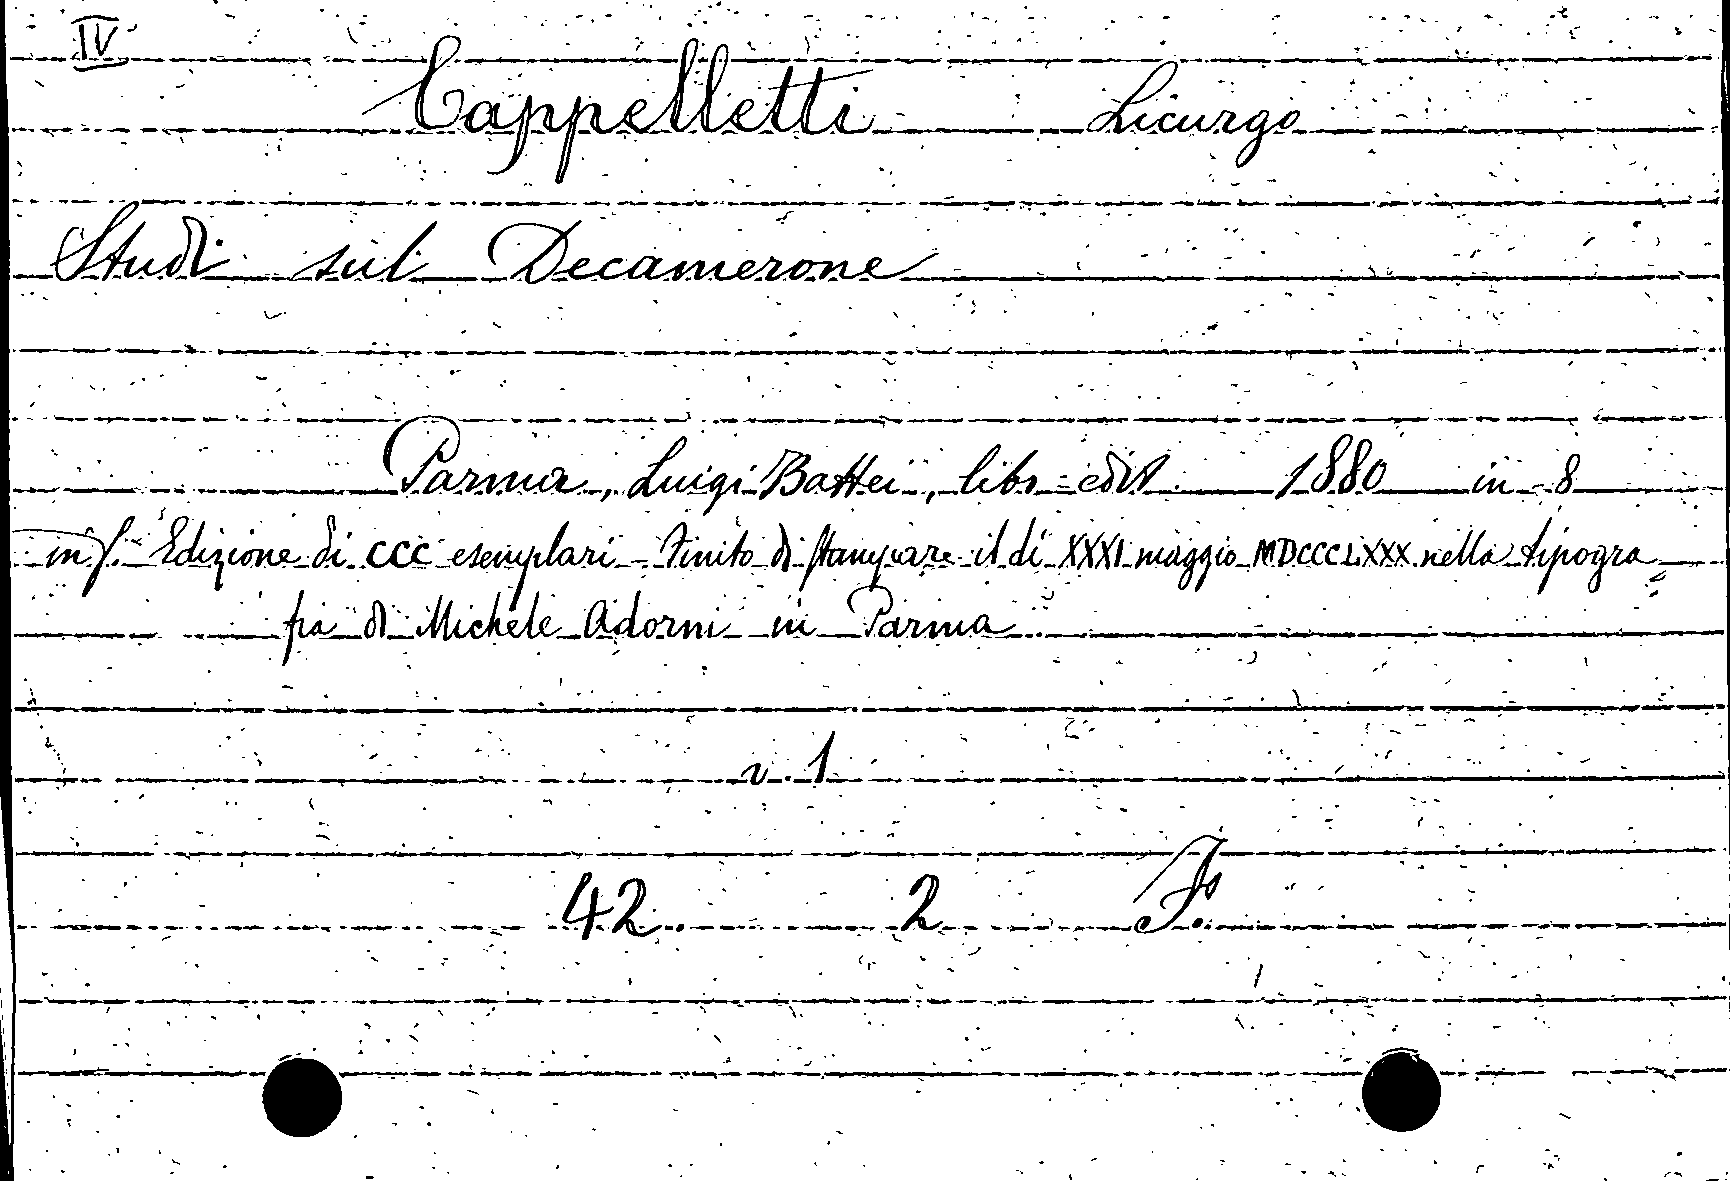 IV
Cappelletti Licurgo
Studi sul Decamerone
Parma, Luigi Battei, libr-edit. 1880 in-8
in f. Edizione di CCC esemplari - Finito di stampare il dí XXXI maggio MDCCCLXXX nella tipogra=
fia di Michele Adorni in Parma
v. 1
42. 2 F.